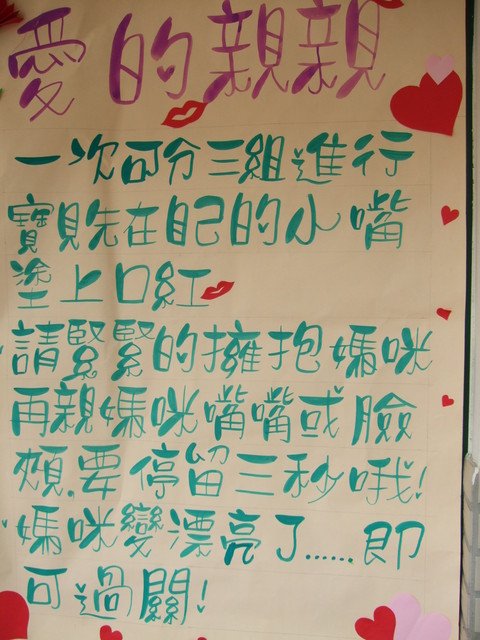 愛的親親
一次可分三組進行
寶貝先在自己的小嘴
塗上口紅
請緊緊的擁抱媽咪
再親媽咪嘴嘴或臉
頰.要停留三秒哦!
媽咪變漂亮了......即
可過關!